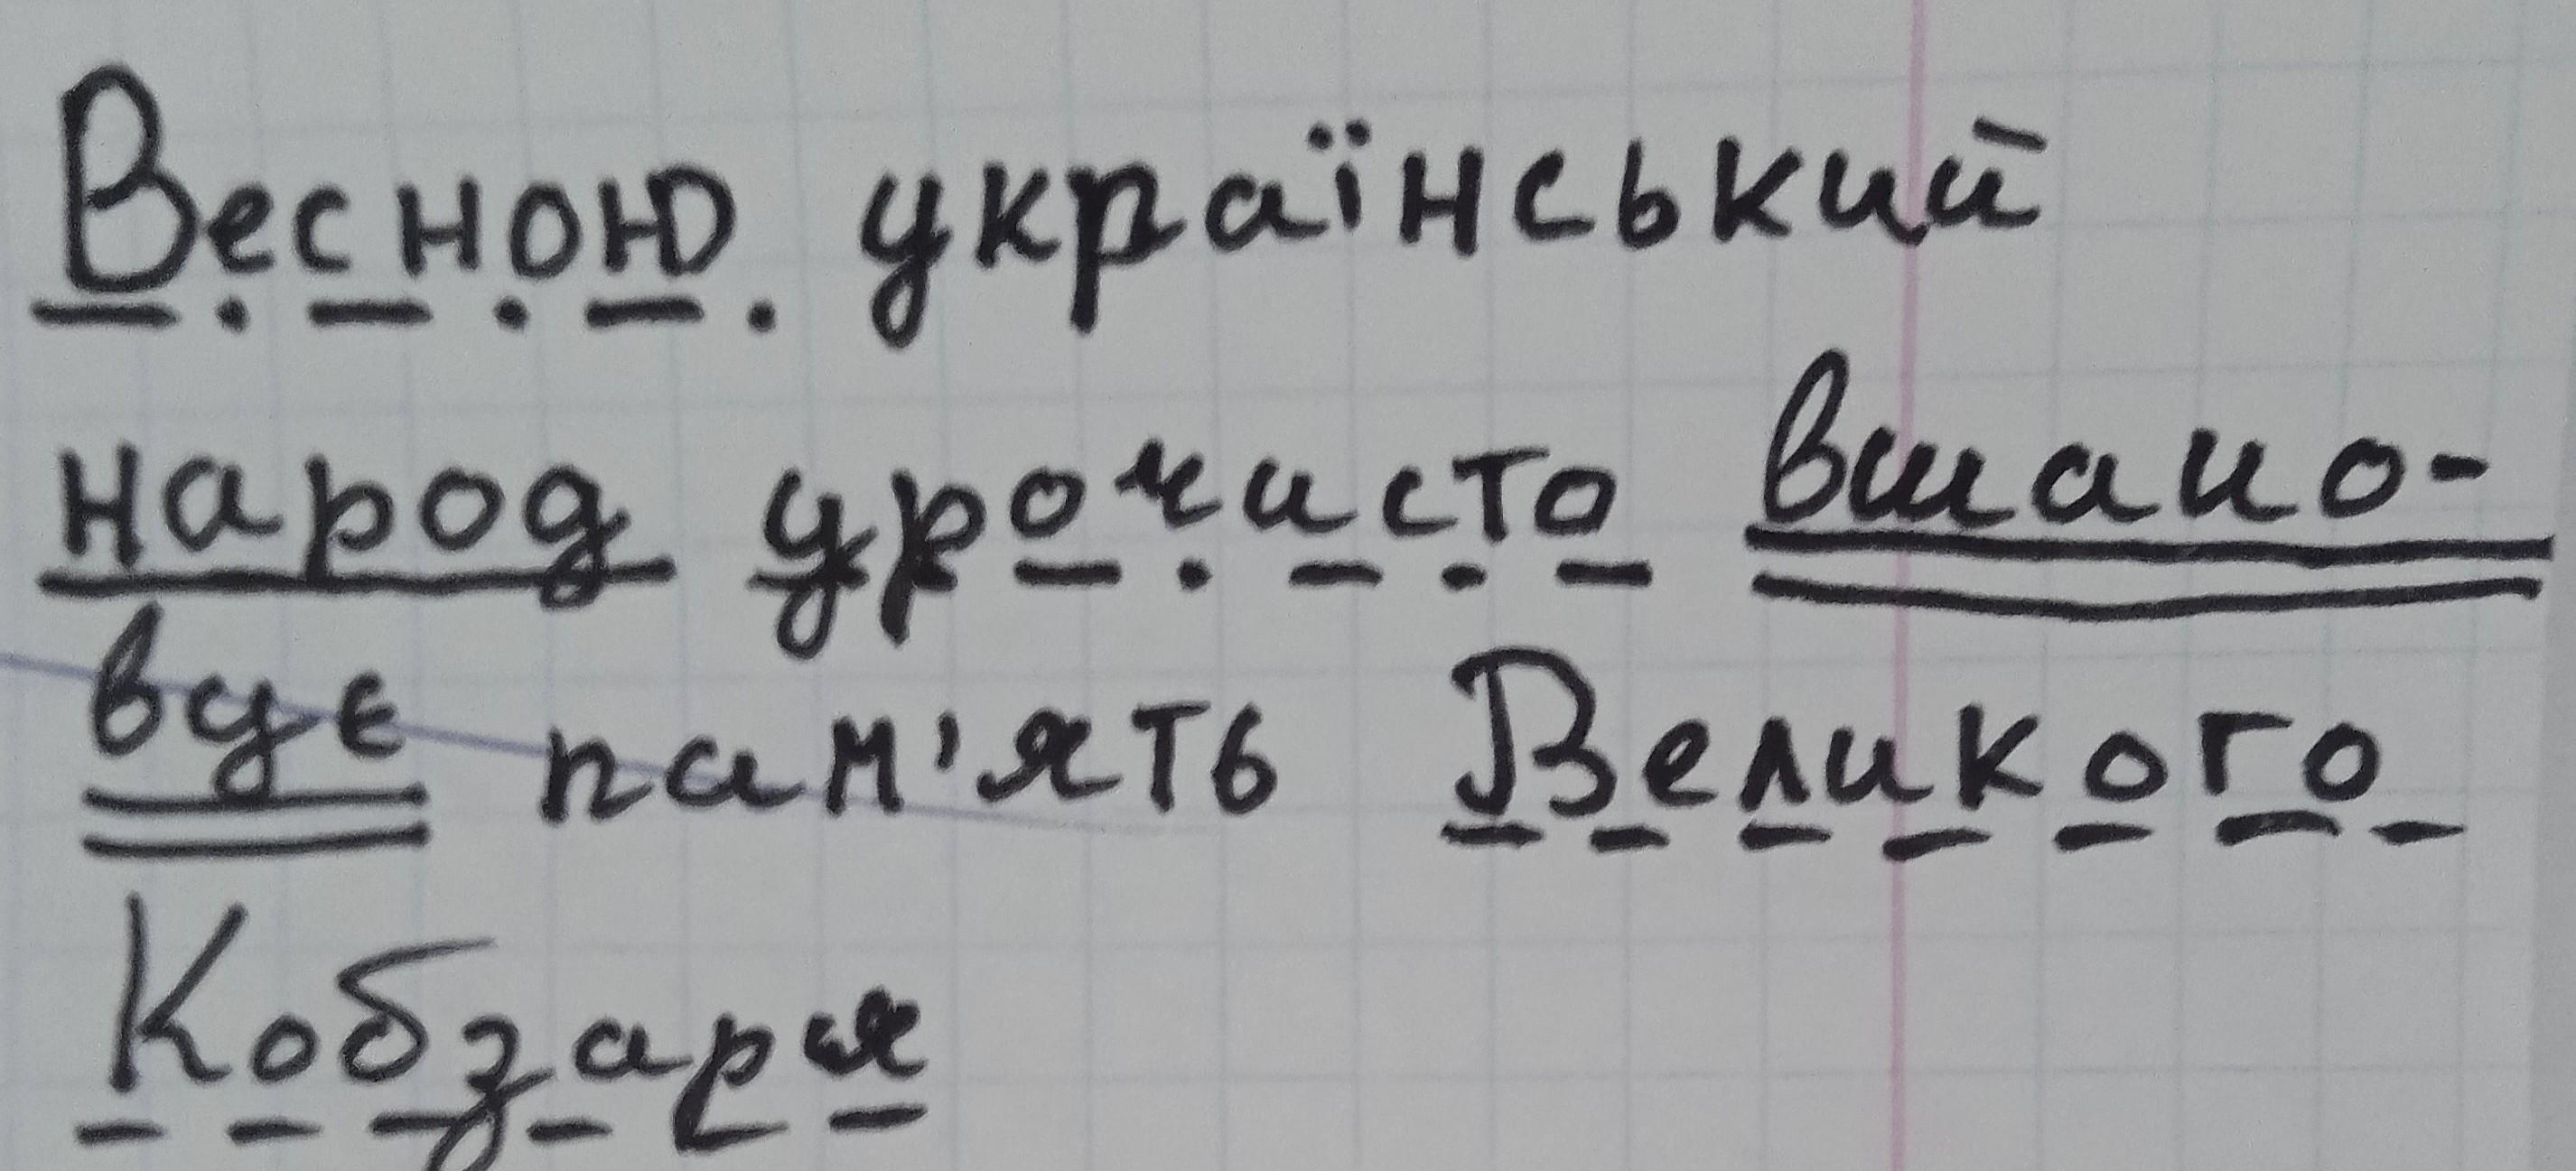 Весною український
народ урочисто вшано-
вує пам'ять Великого
Кобзаря